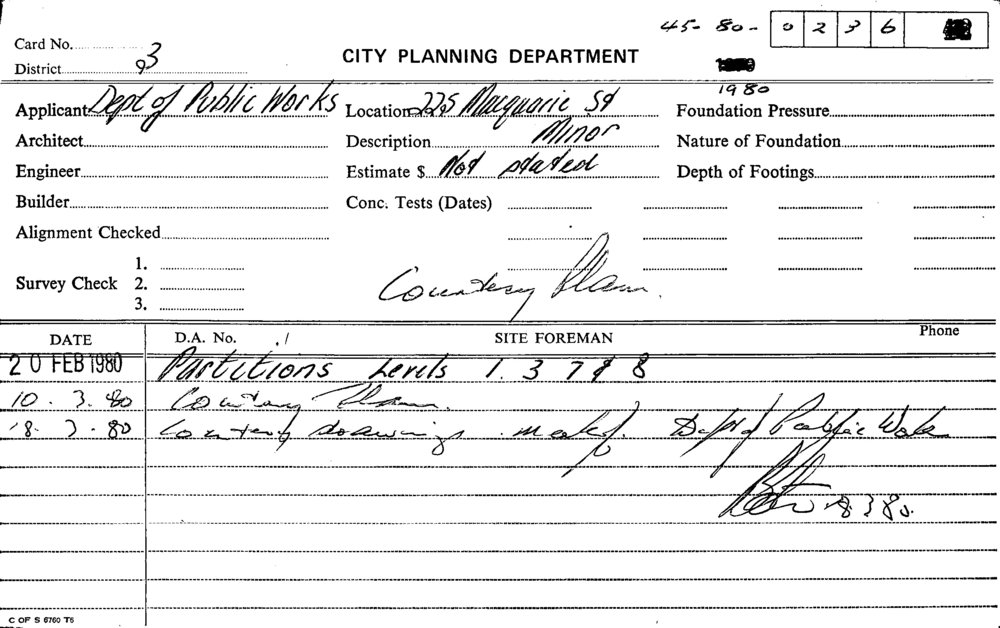 45-80-0236
Card No. 3
CITY PLANNING DEPARTMENT
District 93
1980
Applicant Dept of Public Works Location 225 Macquarie St Foundation Pressure
Architect Description Minor Nature of Foundation
Engineer Estimate $ Not stated Depth of Footings
Builder Conc. Tests (Dates)
Alignment Checked
1.
Survey Check 2. Courtesy Plans.
3.
DATE D.A. No. SITE FOREMAN Phone
20 FEB 1980 Partitions Levels 1. 3 7 & 8
10. 3. 80 Courtesy Plans.
18. 3. 80 Courtesy drawings Dept of Public Works
18.3.80.
C OF S 6760 T6